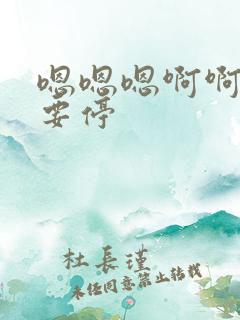 嗯嗯嗯啊啊
要停
杜長瑾
未经同意禁止转载